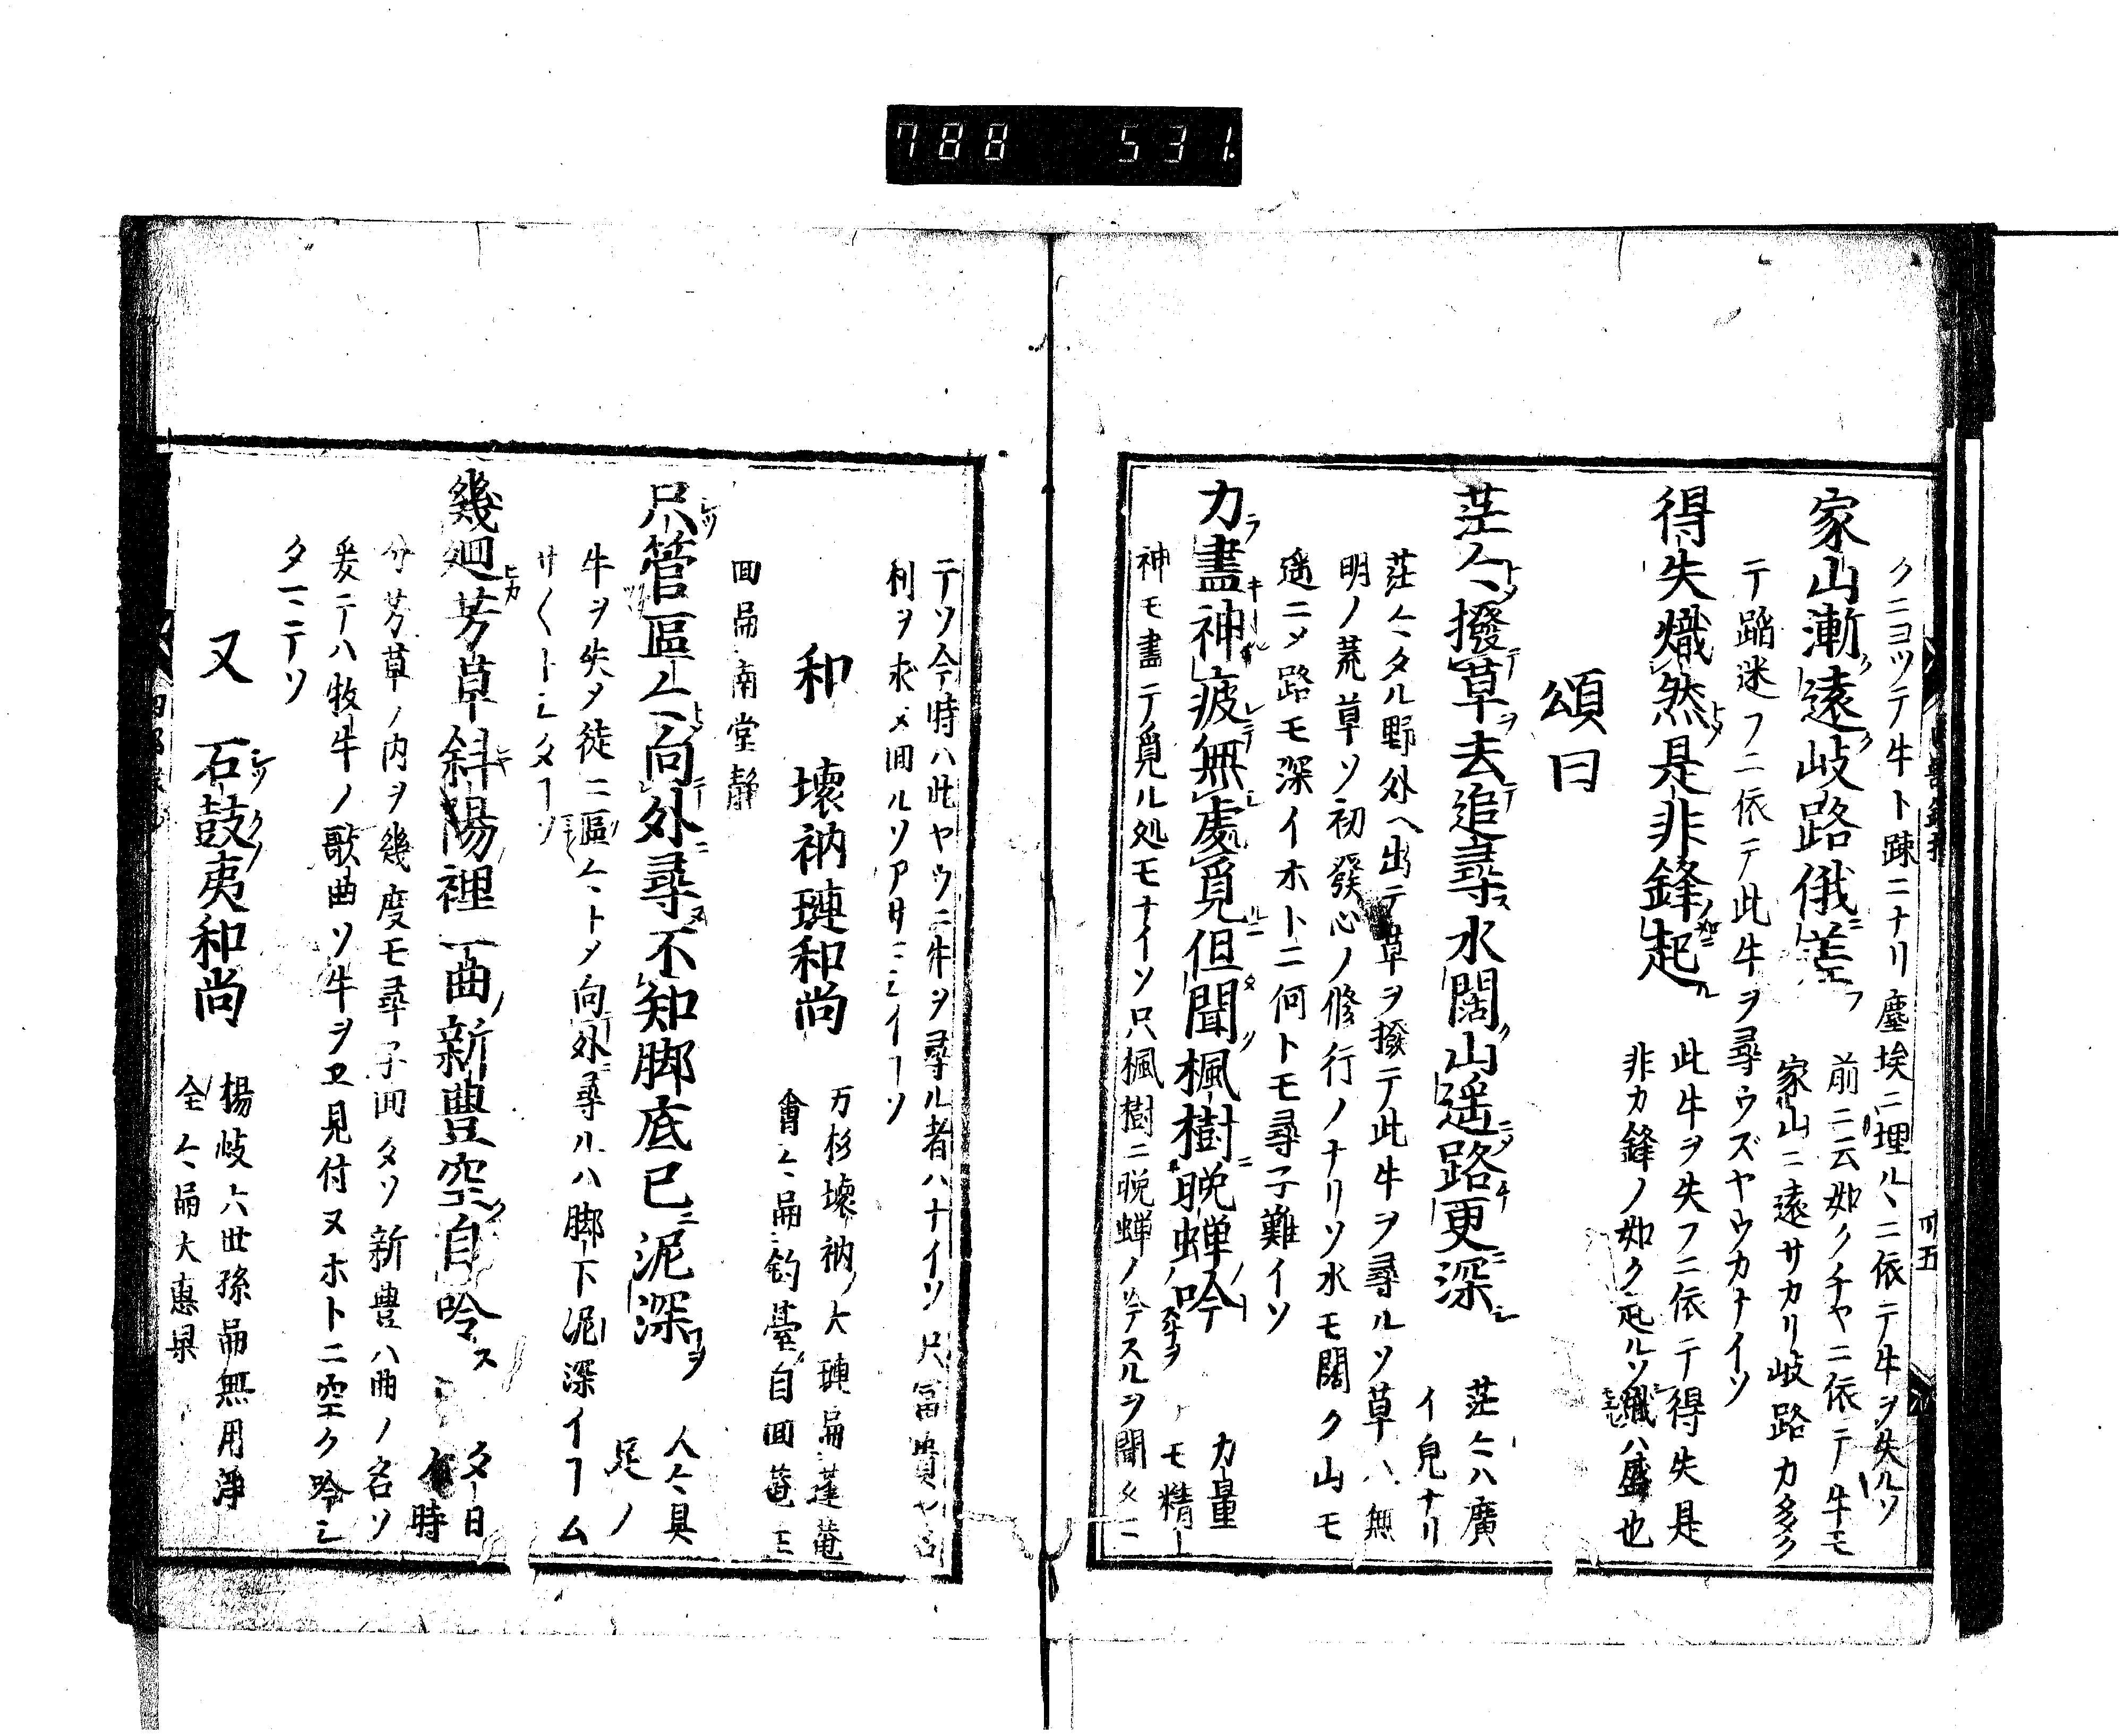 788 531.
クニヨツテ牛ト疎ニナリ塵埃ニ埋ルヽニ依テ牛ヲ失ルソ
家山漸遠岐路俄差
前ニ云如クチヤニ依テ牛モ
家山ニ遠サカリ岐路カ多ク
テ踏迷フニ依テ此牛ヲ尋ウズヤウカナイソ
得失熾然是非鋒起
此牛ヲ失フニ依テ得失是
非カ鋒ノ如ク起ルソ熾ハ盛也
頌曰
茫〻撥草去追尋水闊山遥路更深
茫〻ハ廣
イ皃ナリ
茫〻タル野外ヘ出テ草ヲ撥テ此牛ヲ尋ルソ草ハ無
明ノ荒草ソ初発心ノ修行ノナリソ水モ闊ク山モ
遥ニメ路モ深イホトニ何トモ尋子難イソ
力盡神疲無處覓但聞楓樹晩蝉吟
力量
モ精
神モ盡テ覓ル処モナイソ只楓樹ニ晩蝉ノ吟スルヲ聞タ
テソ今時ハ此ヤウニ牛ヲ尋ル者ハナイソ只冨貴ヤ名
利ヲ求メ回ルソアサ
和 壊衲璉和尚
万杉壊衲ノ大璉嗣蓬菴
會〻嗣釣臺自回菴
回嗣南堂静
只管區〻向外尋不知脚底已泥深
人〻具
足ノ
牛ヲ失タ徒ニ區〻トメ向外尋ルハ脚下泥深イ
幾廻芳草斜陽裡一曲新豊空自吟
夕日
時
分芳草ノ内ヲ幾度モ尋子回タソ新豊ハ曲ノ名ソ
爰テハ牧牛ノ歌曲ソ牛ヲヱ見付ヌホトニ空ク吟シ
タ
又 石鼓夷和尚
楊岐六世孫嗣無用淨
全〻嗣大惠杲